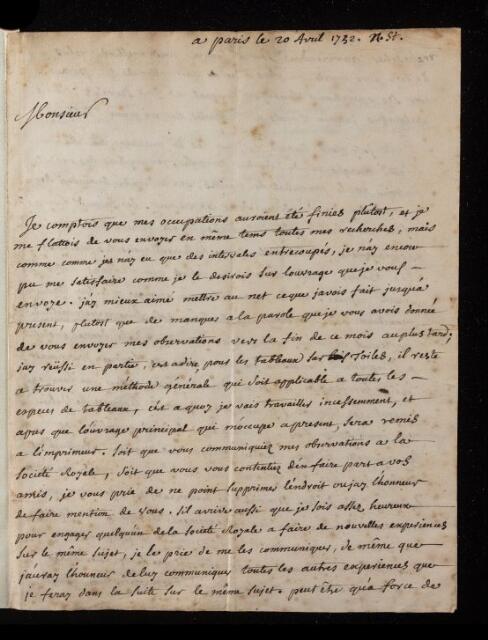 a paris le 20 Avril 1732. N. St.
Monsieur
Je comptois que mes occupations auroient été finies plutost, et je
me flattois de vous envoyer en même tems toutes mes recherches, mais
comme comme je nay eu que des intervales entrecoupés, je nay encore
pu me satisfaire comme je le desirois sur louvrage que je vous
envoye. jay mieux aimé mettre au net ce que javois fait jusqua
present, plutost que de manquer a la parole que je vous avois donnée
de vous envoyer mes observations vers la fin de ce mois au plus tard;
jay reüssi en partie, cest adire pour les tableaux sur Toiles, il reste
a trouver une méthode générale qui soit applicable a toutes les
especes de tableaux, c'est a quoy je vais travailler incessemment, et
apres que l'ouvrage principal qui moccupe apresent, sera remis
a limprimeur. Soit que vous communiquiez mes observations a la
Société Royale, Soit que vous vous contentiez d'en faire part a vos
amis, je vous prie de ne point supprimer lendroit ou jay lhonneur
de faire mention de vous. Sil arrive aussi que je sois assez heureux
pour engager quelquún de la Societé Royale a faire de nouvelles experiences
sur le même sujet, je le prie de me les communiquer, de même que
jauray lhonneur de luy communiquer toutes les autres experiences que
je feray dans la suite sur le même sujet. peut être quá force de